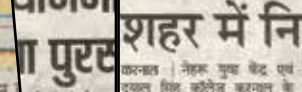 ा पुरस
शहर में नि
करनाल | नेहरू युवा केंद्र एवं
दयाल सिंह कॉलेज करनाल के